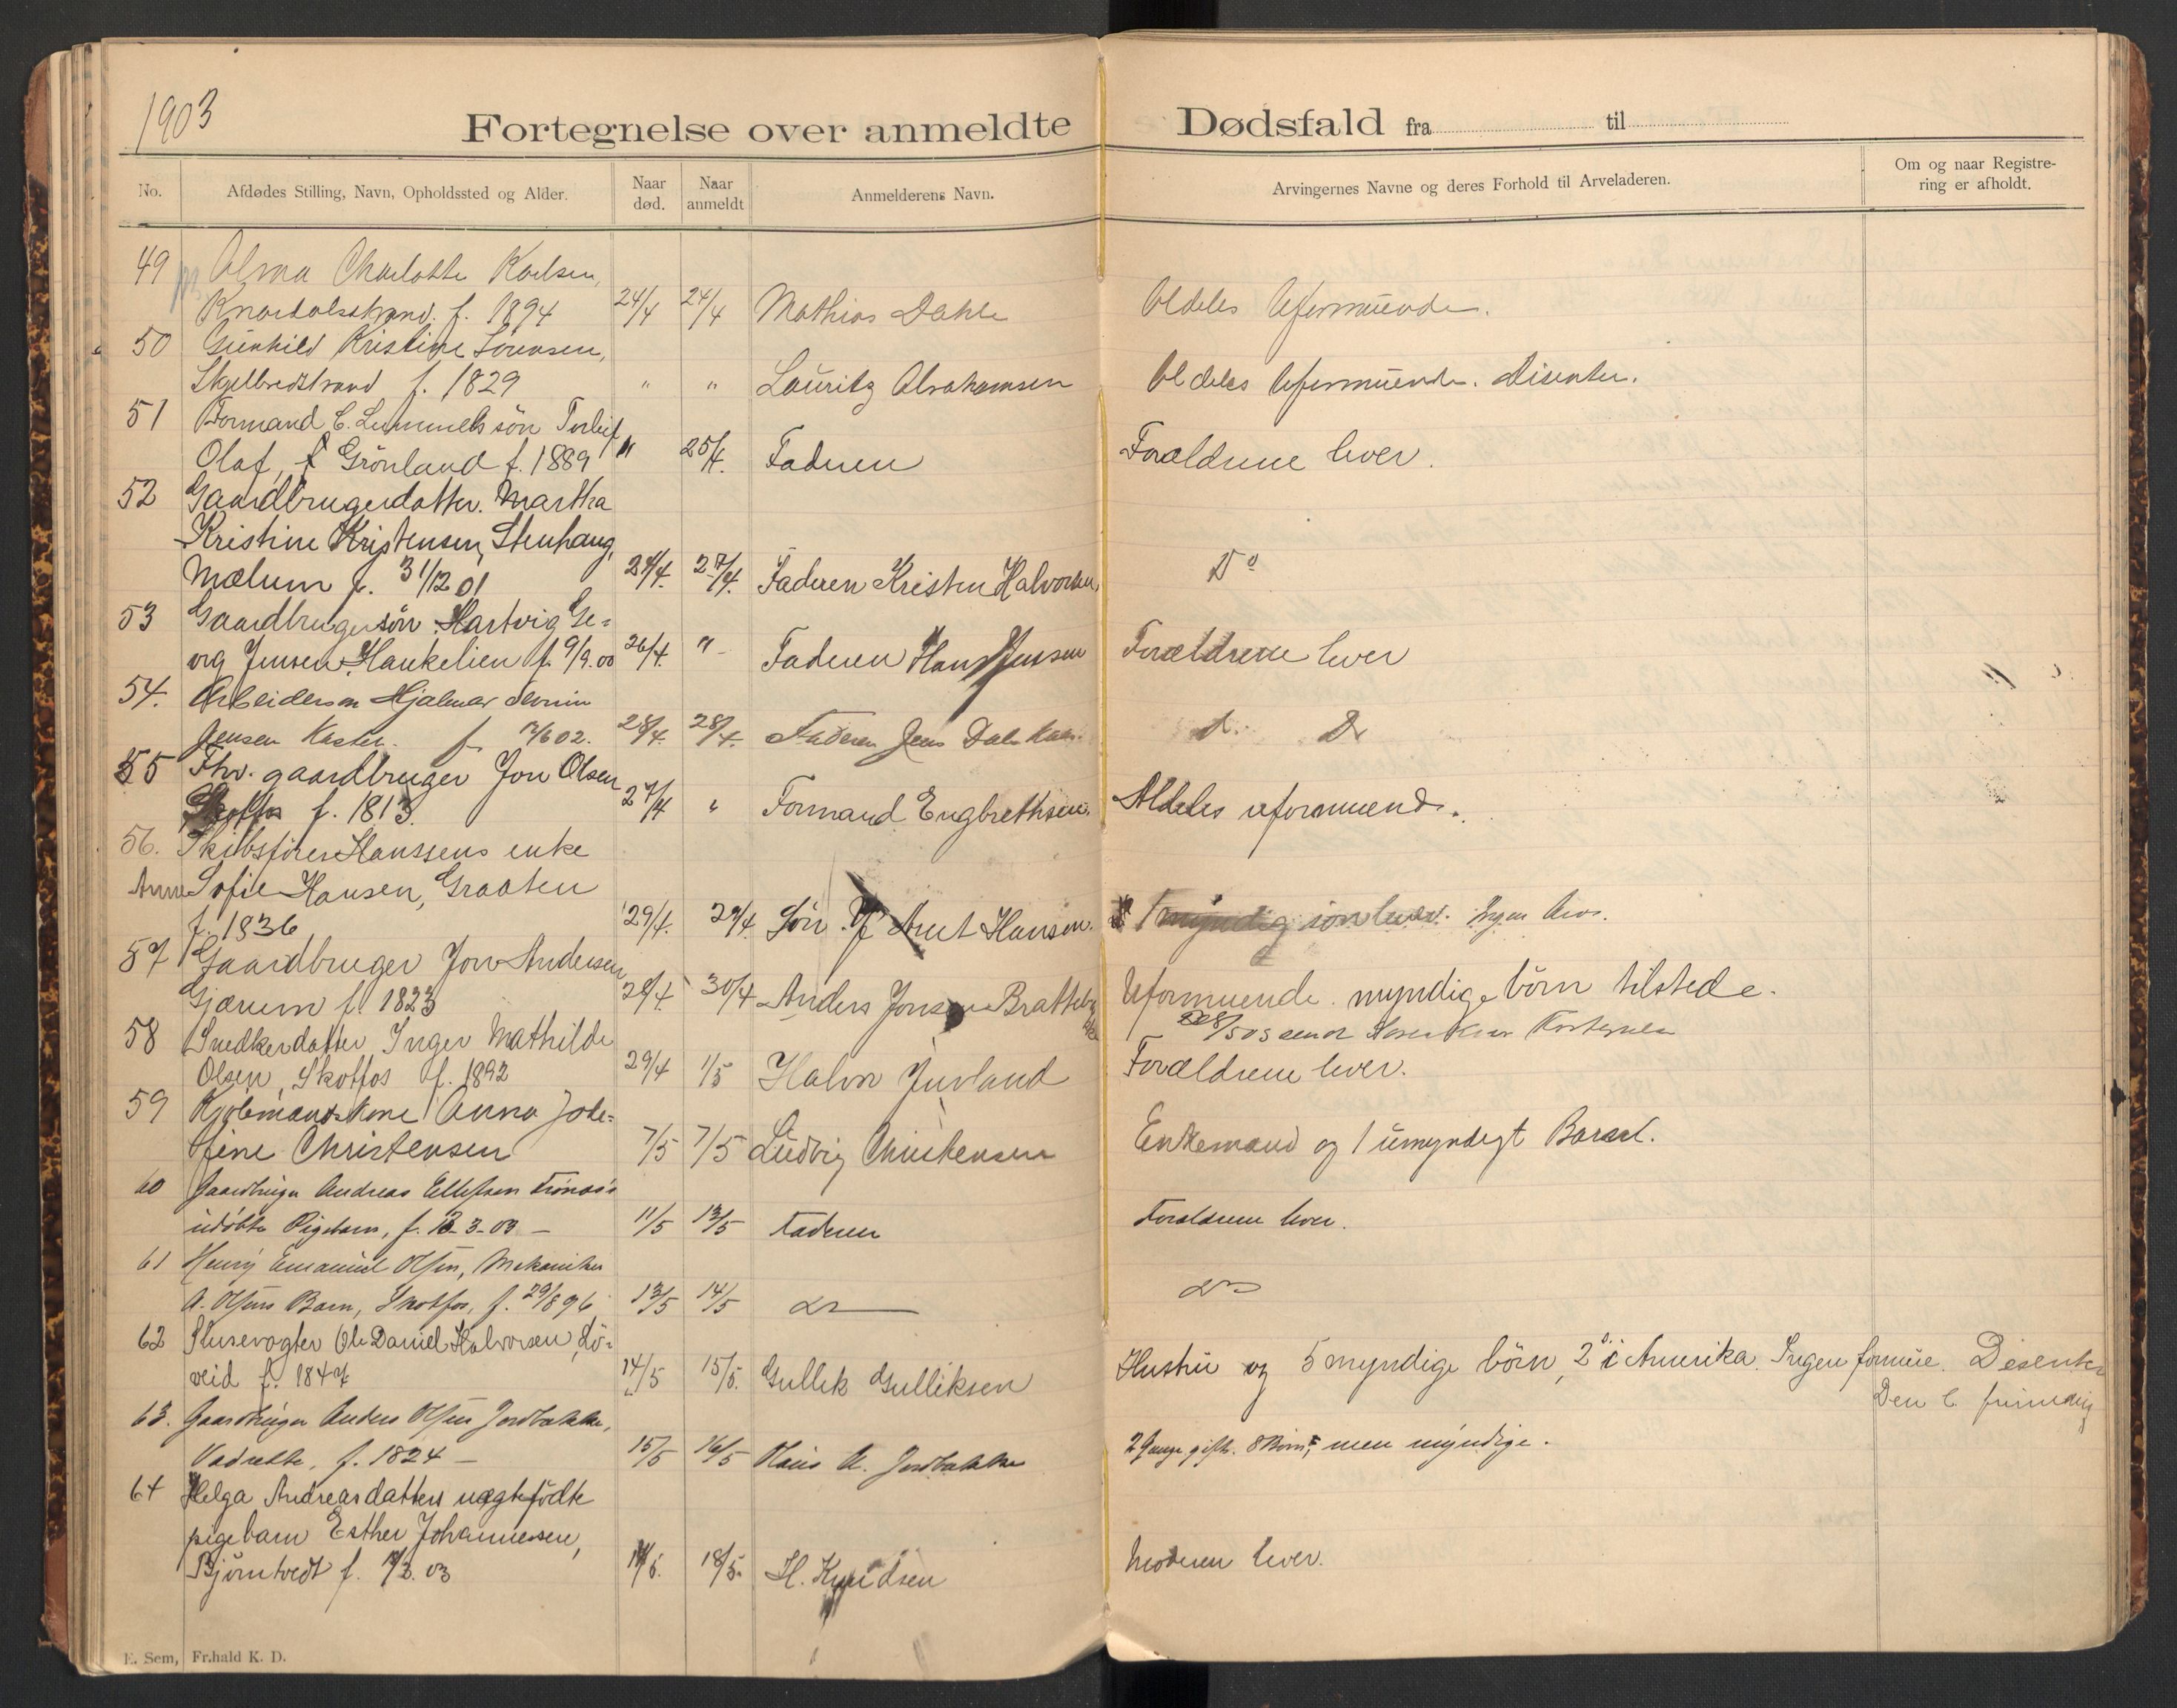 1903
Fortegnelse over anmeldte Dødsfald fra til
No. Afdødes Stilling, Navn, Opholdssted og Alder. Naar død. Naar anmeldt Anmelderens Navn. Arvingernes Navne og deres Forhold til Arveladeren. Om og naar Registrering er afholdt.
49 Alma Charlotte Karlsen,
Knardalsstrand. f. 1894 24/4 24/4 Mathias Dahle Aldeles Uformuende.
50 Gunhild Kristine Sörensen,
Skjelbredstrand f. 1829 " " Lauritz Abrahamsen Aldeles Uformuende. Disenter.
51 Formand C. Lummels sön Torleif
Olaf, Grönland f. 1889 " 25/4. Faderen Forældrene lever.
52 Gaardbrugerdatter. Martha
Kristine Kristensen, Stenhaug,
Mælum f. 31/12 01 24/4. 27/4. Faderen Kristen Halvorsen, Do
53 Gaardbrugersön Hartvig Ge=
org Jensen Haukelien f. 9/9.00 26/4. " Faderen Hans Jensen Forældrene lever
54. Arbeiderson Hjalmar
Jensen f. 02. 28/4. 28/4. Faderen Jens D. Do
55 Fhv. gaardbruger Jon Olsen
Skotfos f. 1813. 27/4 " Formand Engbrethsen. Aldeles uformuende.
56. Skibsförer Hanssens enke
Anne Sofie Hansen, Graaten
f. 1836 29/4. 29/4. Sön Arnt Hansen. 1 myndig sön lever. Ingen Arv.
57 Gaardbruger Jon Andersen
Gjærum f. 1823 28/4. 30/4 Anders Jonsen Uformuende. myndige börn tilstede.
58 Snedkerdatter Inger Mathilde
Olsen, Skotfos f. 1892 29/4 1/5 Halvor Forældrene lever.
59 Kjöbmandskone Anna Jose=
fine Christensen 7/5 7/5 Ludvig Christensen Enkemand og 1 umyndigt Barn.
60 Gaardbruger Andreas Ellefsen
udöbte Pigebarn, f. 3-03 – 11/5 13/5 Faderen Forældrene lever.
61 Henry Emanuel Olsen, Mekaniker
A. Olsens Barn, Skotfos, f. 29/8 96 13/5 14/5 do do
62 Slusevogter Ole Daniel Halvorsen, Lö=
veid f. 1847 14/5 15/5. Gullik Gulliksen Hustru og 5 myndige börn, 2 i Amerika. Ingen formue. Disenter
63. Gaardbruger Anders Olsen Jordbakke,
f. 1824 – 15/5 16/5 A. Jordbakke 2 Gange gift. 8 Börn, men myndige.
64 Helga Andreasdatters uægtefödte
pigebarn Esther Johannesen,
Björntvedt f. 03 18/5. H. Knudsen Moderen lever.
E. Sem, Fr.hald K. D.